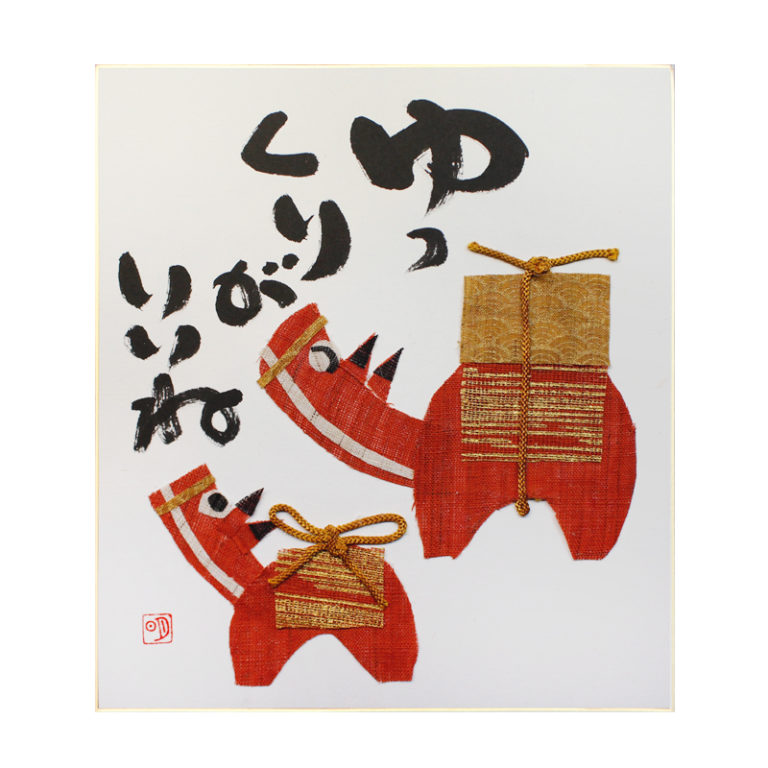 ゆっ
くりが
いいね